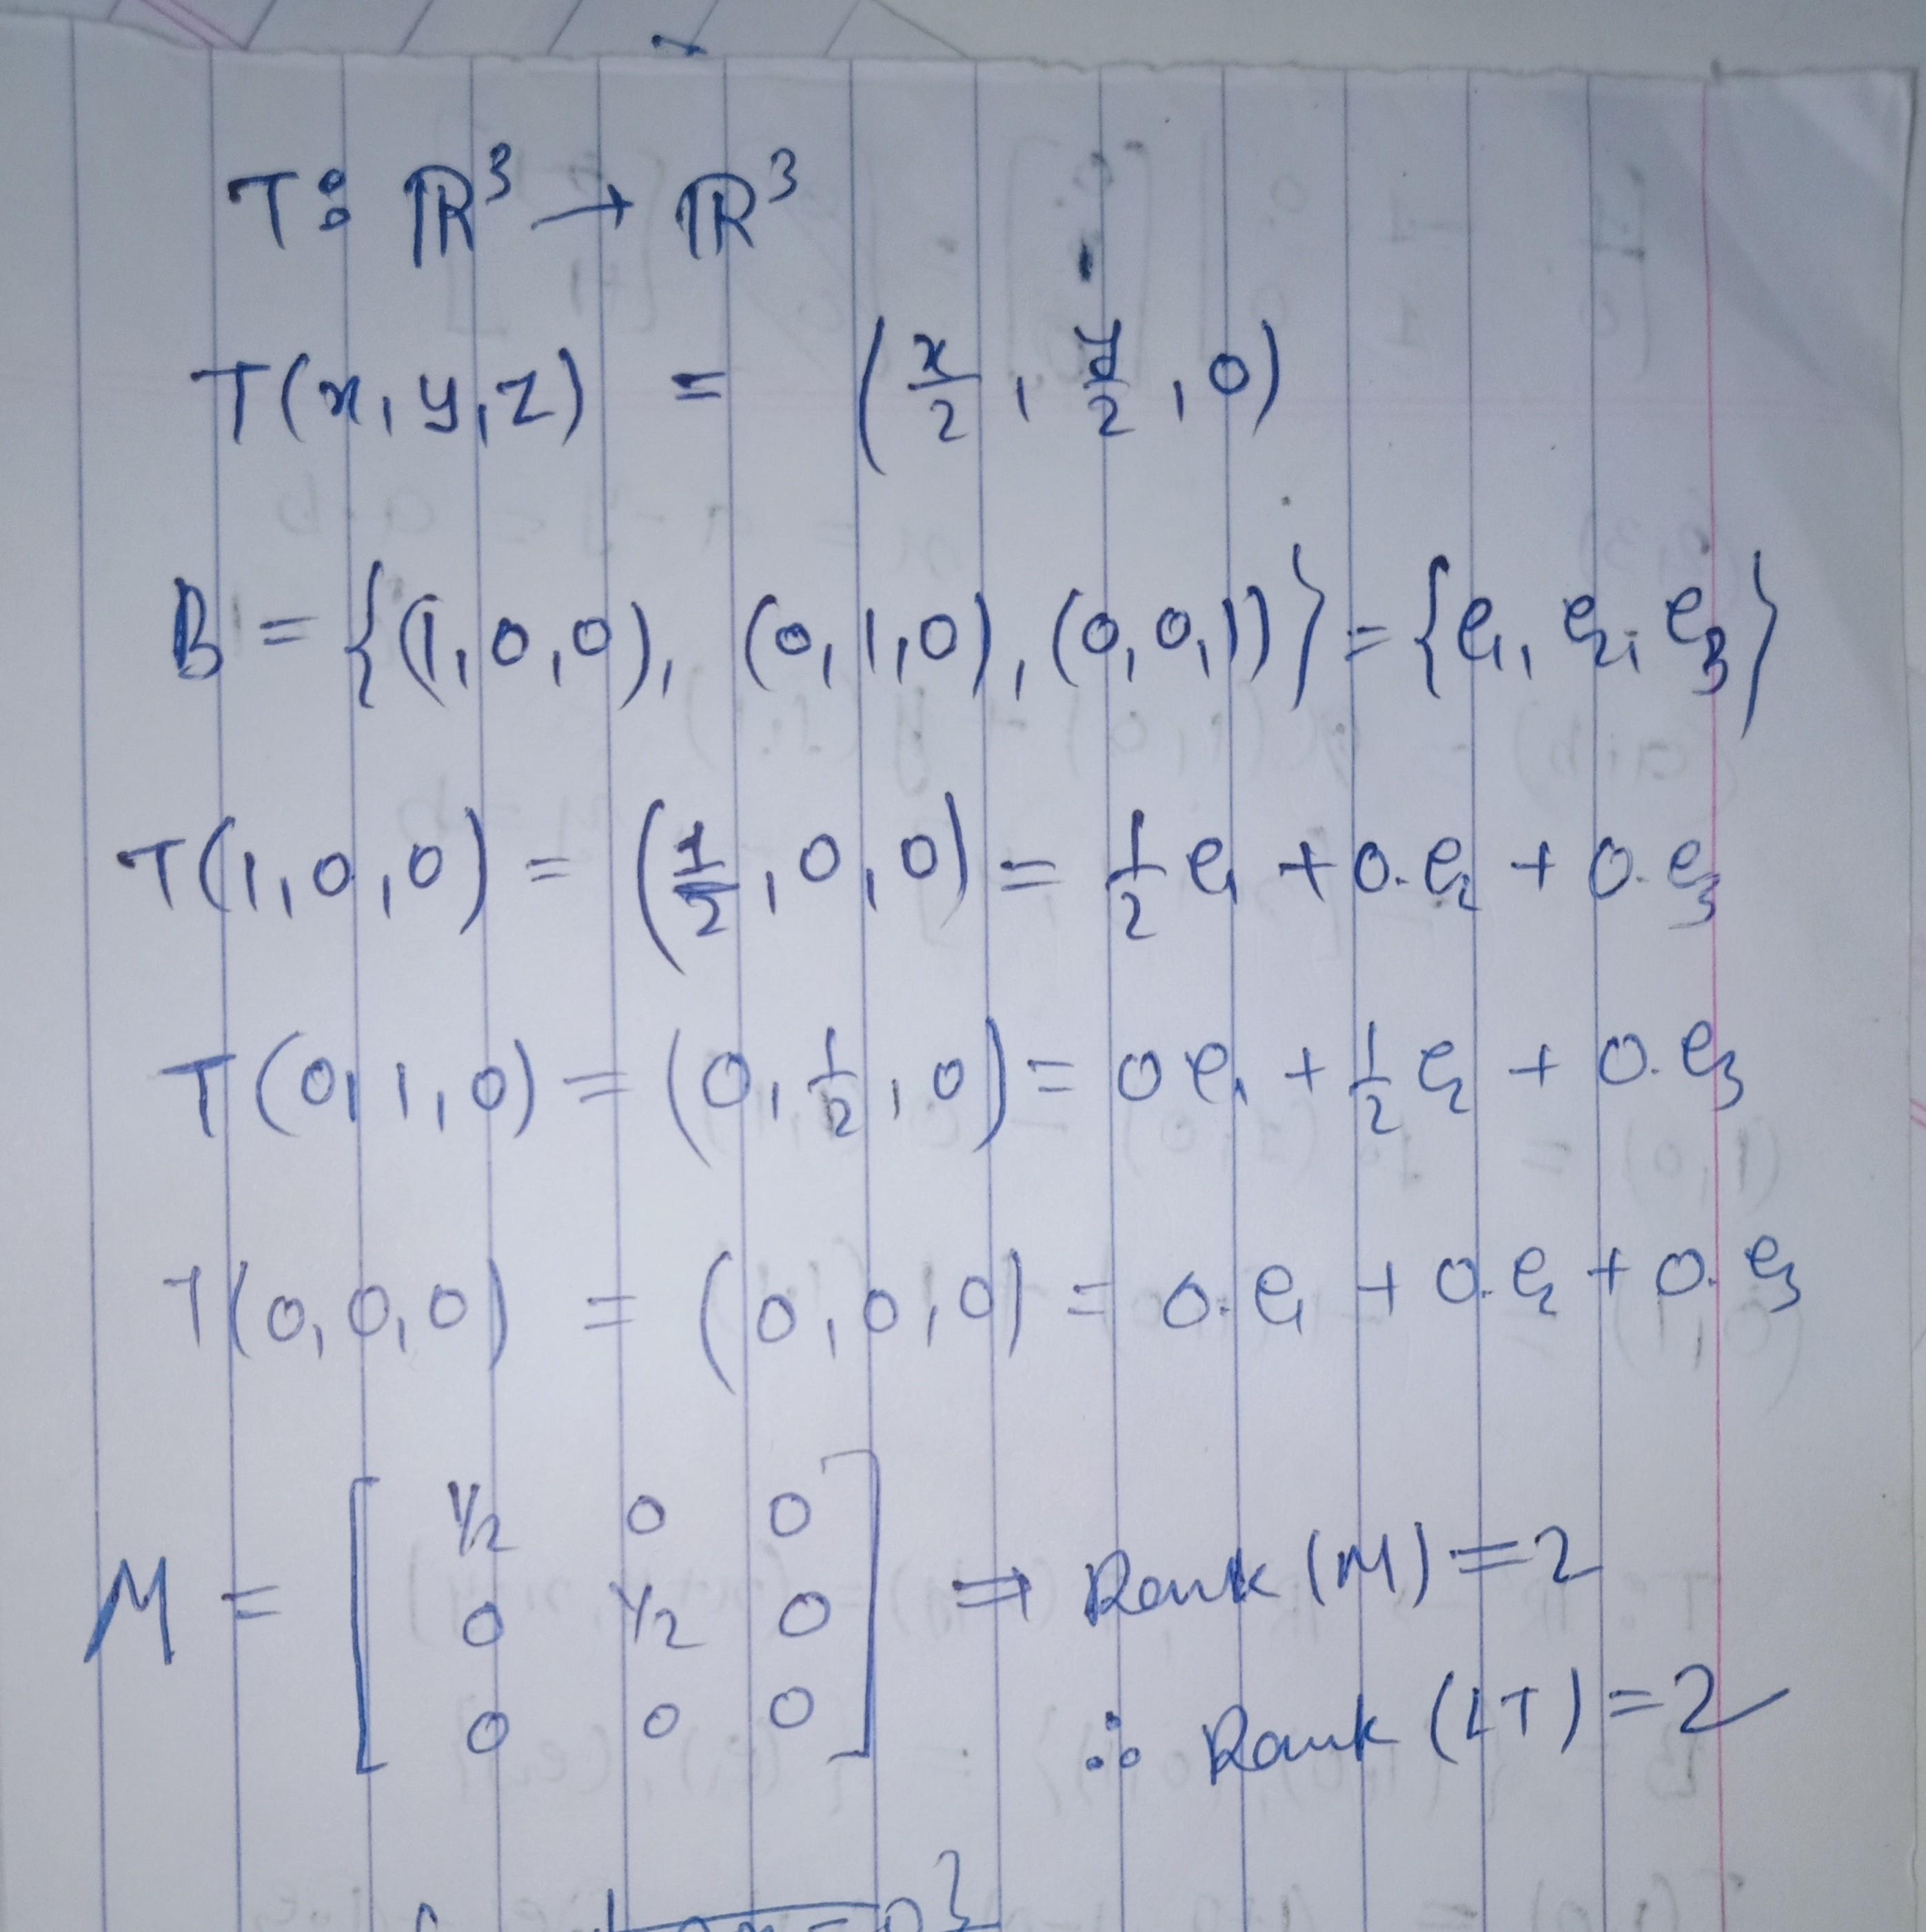 T: ℝ³ → ℝ³
T(x, y, z) = (x/2, y/2, 0)
B = {(1,0,0), (0,1,0), (0,0,1)} = {e₁, e₂, e₃}
T(1,0,0) = (1/2, 0, 0) = 1/2 e₁ + 0.e₂ + 0.e₃
T(0,1,0) = (0, 1/2, 0) = 0e₁ + 1/2 e₂ + 0.e₃
T(0,0,0) = (0,0,0) = 0.e₁ + 0.e₂ + 0.e₃
M = [ 1/2 0 0
0 1/2 0
0 0 0 ] ⇒ Rank (M) = 2
∴ Rank (LT) = 2